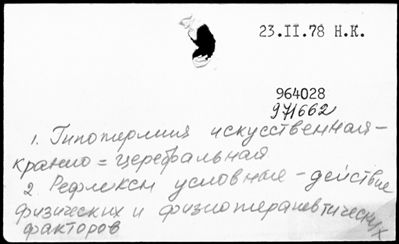 23.II.78 Н.К.
964028
971662
1. Гипотермия искусственная-
кранио=церебральная
2. Рефлексы условные - действие
физических и физиотерапевтических
факторов